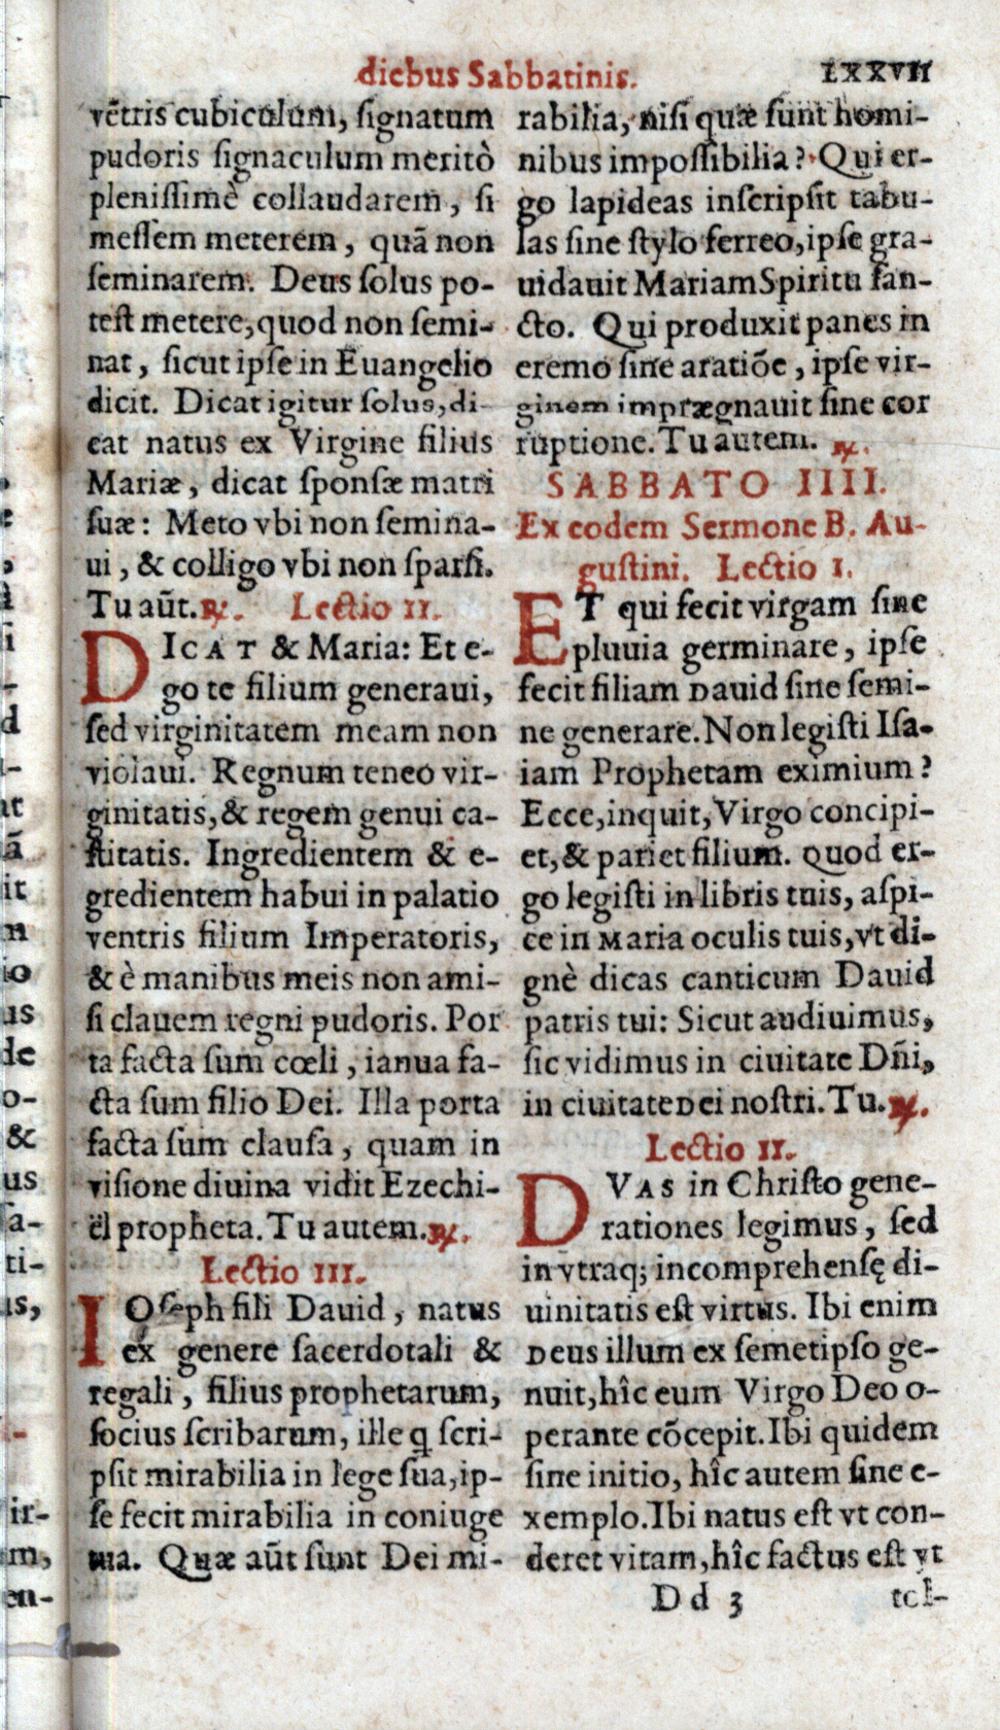 diebus Sabbatinis. LXXVII
vẽtris cubiculum, ſignatum
pudoris ſignaculum meritò
pleniſſimè collaudarem, ſi
meſſem meterem, quã non
ſeminarem. Deus ſolus po-
teſt metere, quod non ſemi-
nat, ſicut ipſe in Euangelio
dicit. Dicat igitur ſolus, di-
cat natus ex Virgine filius
Mariæ, dicat ſponſæ matri
ſuæ: Meto vbi non ſemina-
ui, & colligo vbi non ſparſi.
Tu aũt. ℞. Lectio II.
DICAT & Maria: Et e-
go te filium generaui,
ſed virginitatem meam non
violaui. Regnum teneo vir-
ginitatis, & regem genui ca-
ſtitatis. Ingredientem & e-
gredientem habui in palatio
ventris filium Imperatoris,
& è manibus meis non ami-
ſi clauem regni pudoris. Por
ta facta ſum cœli, ianua fa-
cta ſum filio Dei. Illa porta
facta ſum clauſa, quam in
viſione diuina vidit Ezechi-
ël propheta. Tu autem. ℞.
Lectio III.
IOſeph fili Dauid, natus
ex genere ſacerdotali &
regali, filius prophetarum,
ſocius ſcribarum, ille q ſcri-
pſit mirabilia in lege ſua, ip-
ſe fecit mirabilia in coniuge
tua. Quæ aũt ſunt Dei mi-
rabilia, niſi quæ ſunt homi-
nibus impoſſibilia? Qui er-
go lapideas inſcripſit tabu-
las ſine ſtylo ferreo, ipſe gra-
uidauit Mariam Spiritu ſan-
cto. Qui produxit panes in
eremo ſine aratiõe, ipſe vir-
ginem imprægnauit ſine cor
ruptione. Tu autem. ℞.
SABBATO IIII.
Ex eodem Sermone B. Au-
guſtini. Lectio I.
ET qui fecit virgam ſine
pluuia germinare, ipſe
fecit filiam Dauid ſine ſemi-
ne generare. Non legiſti Iſa-
iam Prophetam eximium?
Ecce, inquit, Virgo concipi-
et, & pariet filium. Quod er-
go legiſti in libris tuis, aſpi-
ce in Maria oculis tuis, vt di-
gnè dicas canticum Dauid
patris tui: Sicut audiuimus,
ſic vidimus in ciuitate Dñi,
in ciuitate Dei noſtri. Tu. ℞.
Lectio II.
DVAS in Chriſto gene-
rationes legimus, ſed
in vtraq; incomprehenſę di-
uinitatis eſt virtus. Ibi enim
Deus illum ex ſemetipſo ge-
nuit, hîc eum Virgo Deo o-
perante cõcepit. Ibi quidem
ſine initio, hîc autem ſine e-
xemplo. Ibi natus eſt vt con-
deret vitam, hîc factus eſt vt
Dd 3 tol-